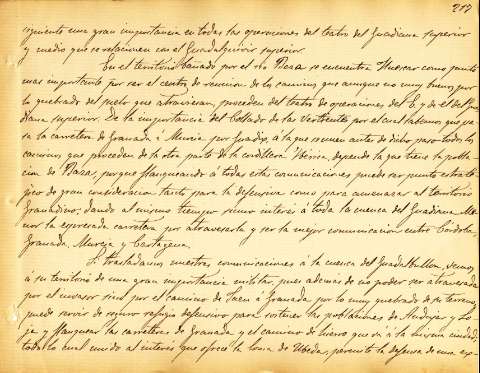 217
siguiente una gran importancia en todas las operaciones del teatro del Guadiana superior
y medio que se relacionen con el Guadalquivir superior
En el territorio bañado por el río Baza se encuentra Huescar como punto
mas importante por ser el centro de reunion de los caminos que aunque no muy buenos por
lo quebrado del suelo que atraviesan, proceden del teatro de operaciones del E. y de el del Gua
diana superior. De la importancia del Collado de las Vertientes por el cual sabemos que pa-
sa la carretera de Granada á Murcia por Guadix, á la que se unen antes de dicho paso todos los
caminos que proceden de la otra parte de la cordillera Ibérica, depende la que tiene la pobla
cion de Baza, porque flanqueando á todas estas comunicaciones puede ser punto estraté
jico de gran consideracion tanto para la defensiva como para amenazar al territorio
Granadino; dando al mismo tiempo sumo interés á toda la cuenca del Guadiana Me
nor la espresada carretera por atravesarla y ser la mejor comunicacion entre Córdoba,
Granada, Murcia y Cartagena.
Si trasladamos nuestras comunicaciones á la cuenca del Guadalbullon, vemos
á su territorio de una gran importancia militar, pues además de no poder ser atravesada
por el invasor sino por el camino de Jaen á Granada por lo muy quebrado de su terreno,
puede servir de seguro refugio defensivo para sostener las poblaciones de Andujar y Lo
ja y flanquear la carretera de Granada y el camino de hierro que vá á la misma ciudad;
todo lo cual unido al interés que ofrece la loma de Ubeda, permite la defensa de una es-